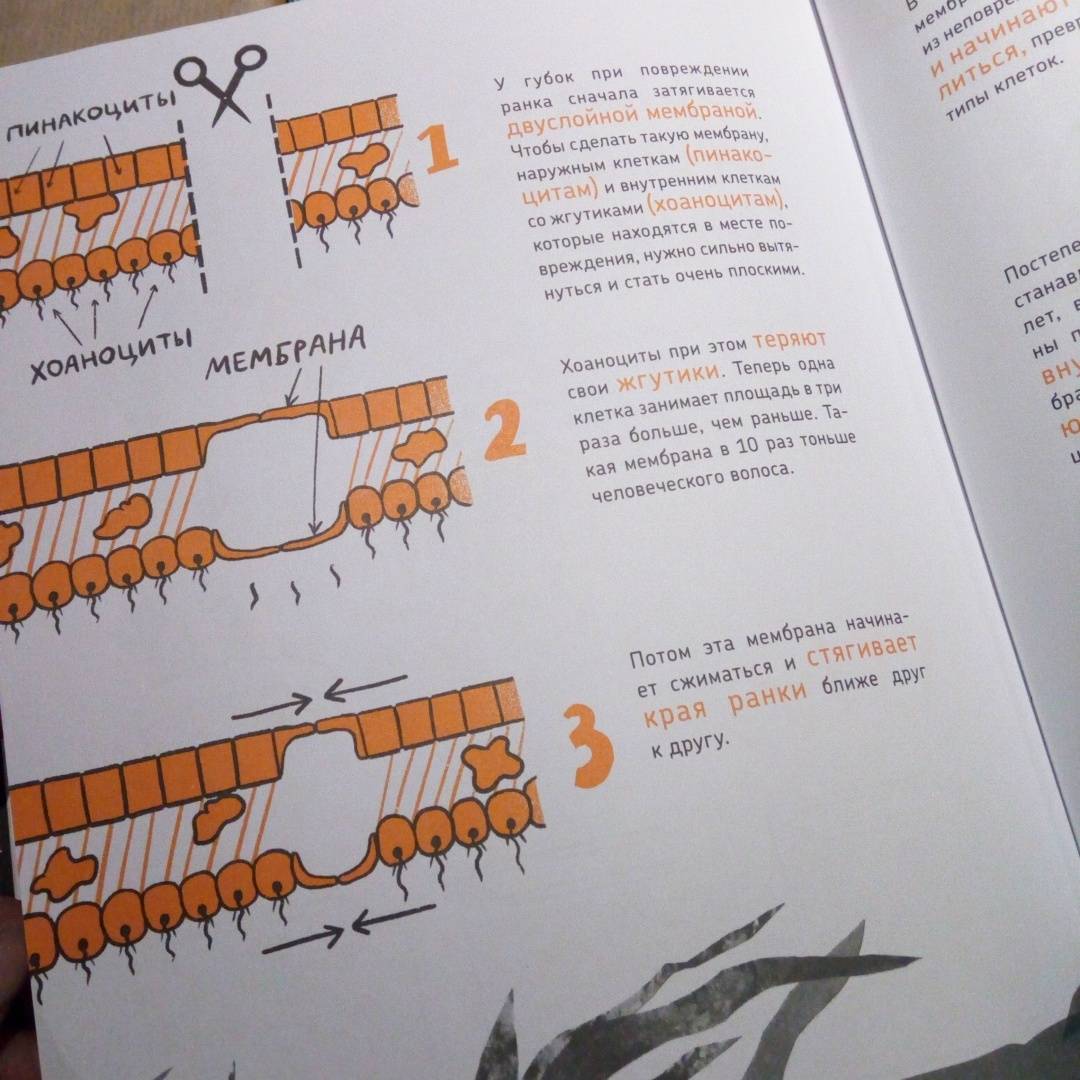 ПИНАКОЦИТЫ
1
У губок при повреждении
ранка сначала затягивается
двуслойной мембраной.
Чтобы сделать такую мембрану,
наружным клеткам (пинако-
цитам) и внутренним клеткам
со жгутиками (хоаноцитам),
которые находятся в месте по-
вреждения, нужно сильно вытя-
нуться и стать очень плоскими.
ХОАНОЦИТЫ
МЕМБРАНА
2
Хоаноциты при этом теряют
свои жгутики. Теперь одна
клетка занимает площадь в три
раза больше, чем раньше. Та-
кая мембрана в 10 раз тоньше
человеческого волоса.
3
Потом эта мембрана начина-
ет сжиматься и стягивает
края ранки ближе друг
к другу.
В
мембр
из неповре
и начинают
литься, превр
типы клеток.
Постепе
станав
лет, в
ны п
вну
бра
ю
ц